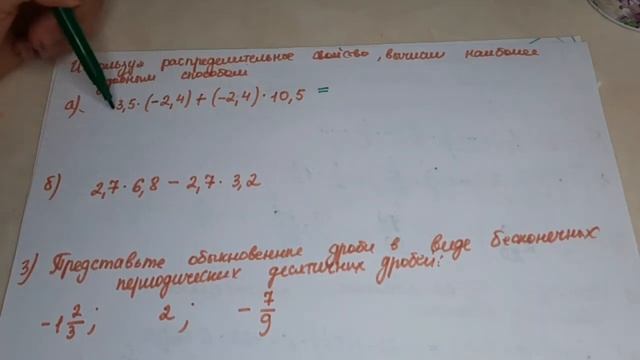 Используя распределительное свойство, вычисли наиболее
удобным способом
а) 3,5·(-2,4)+(-2,4)·10,5 =
б) 2,7·6,8 - 2,7·3,2
3) Представьте обыкновенные дроби в виде бесконечных
периодических десятичных дробей:
-1 2/3; 2; - 7/9